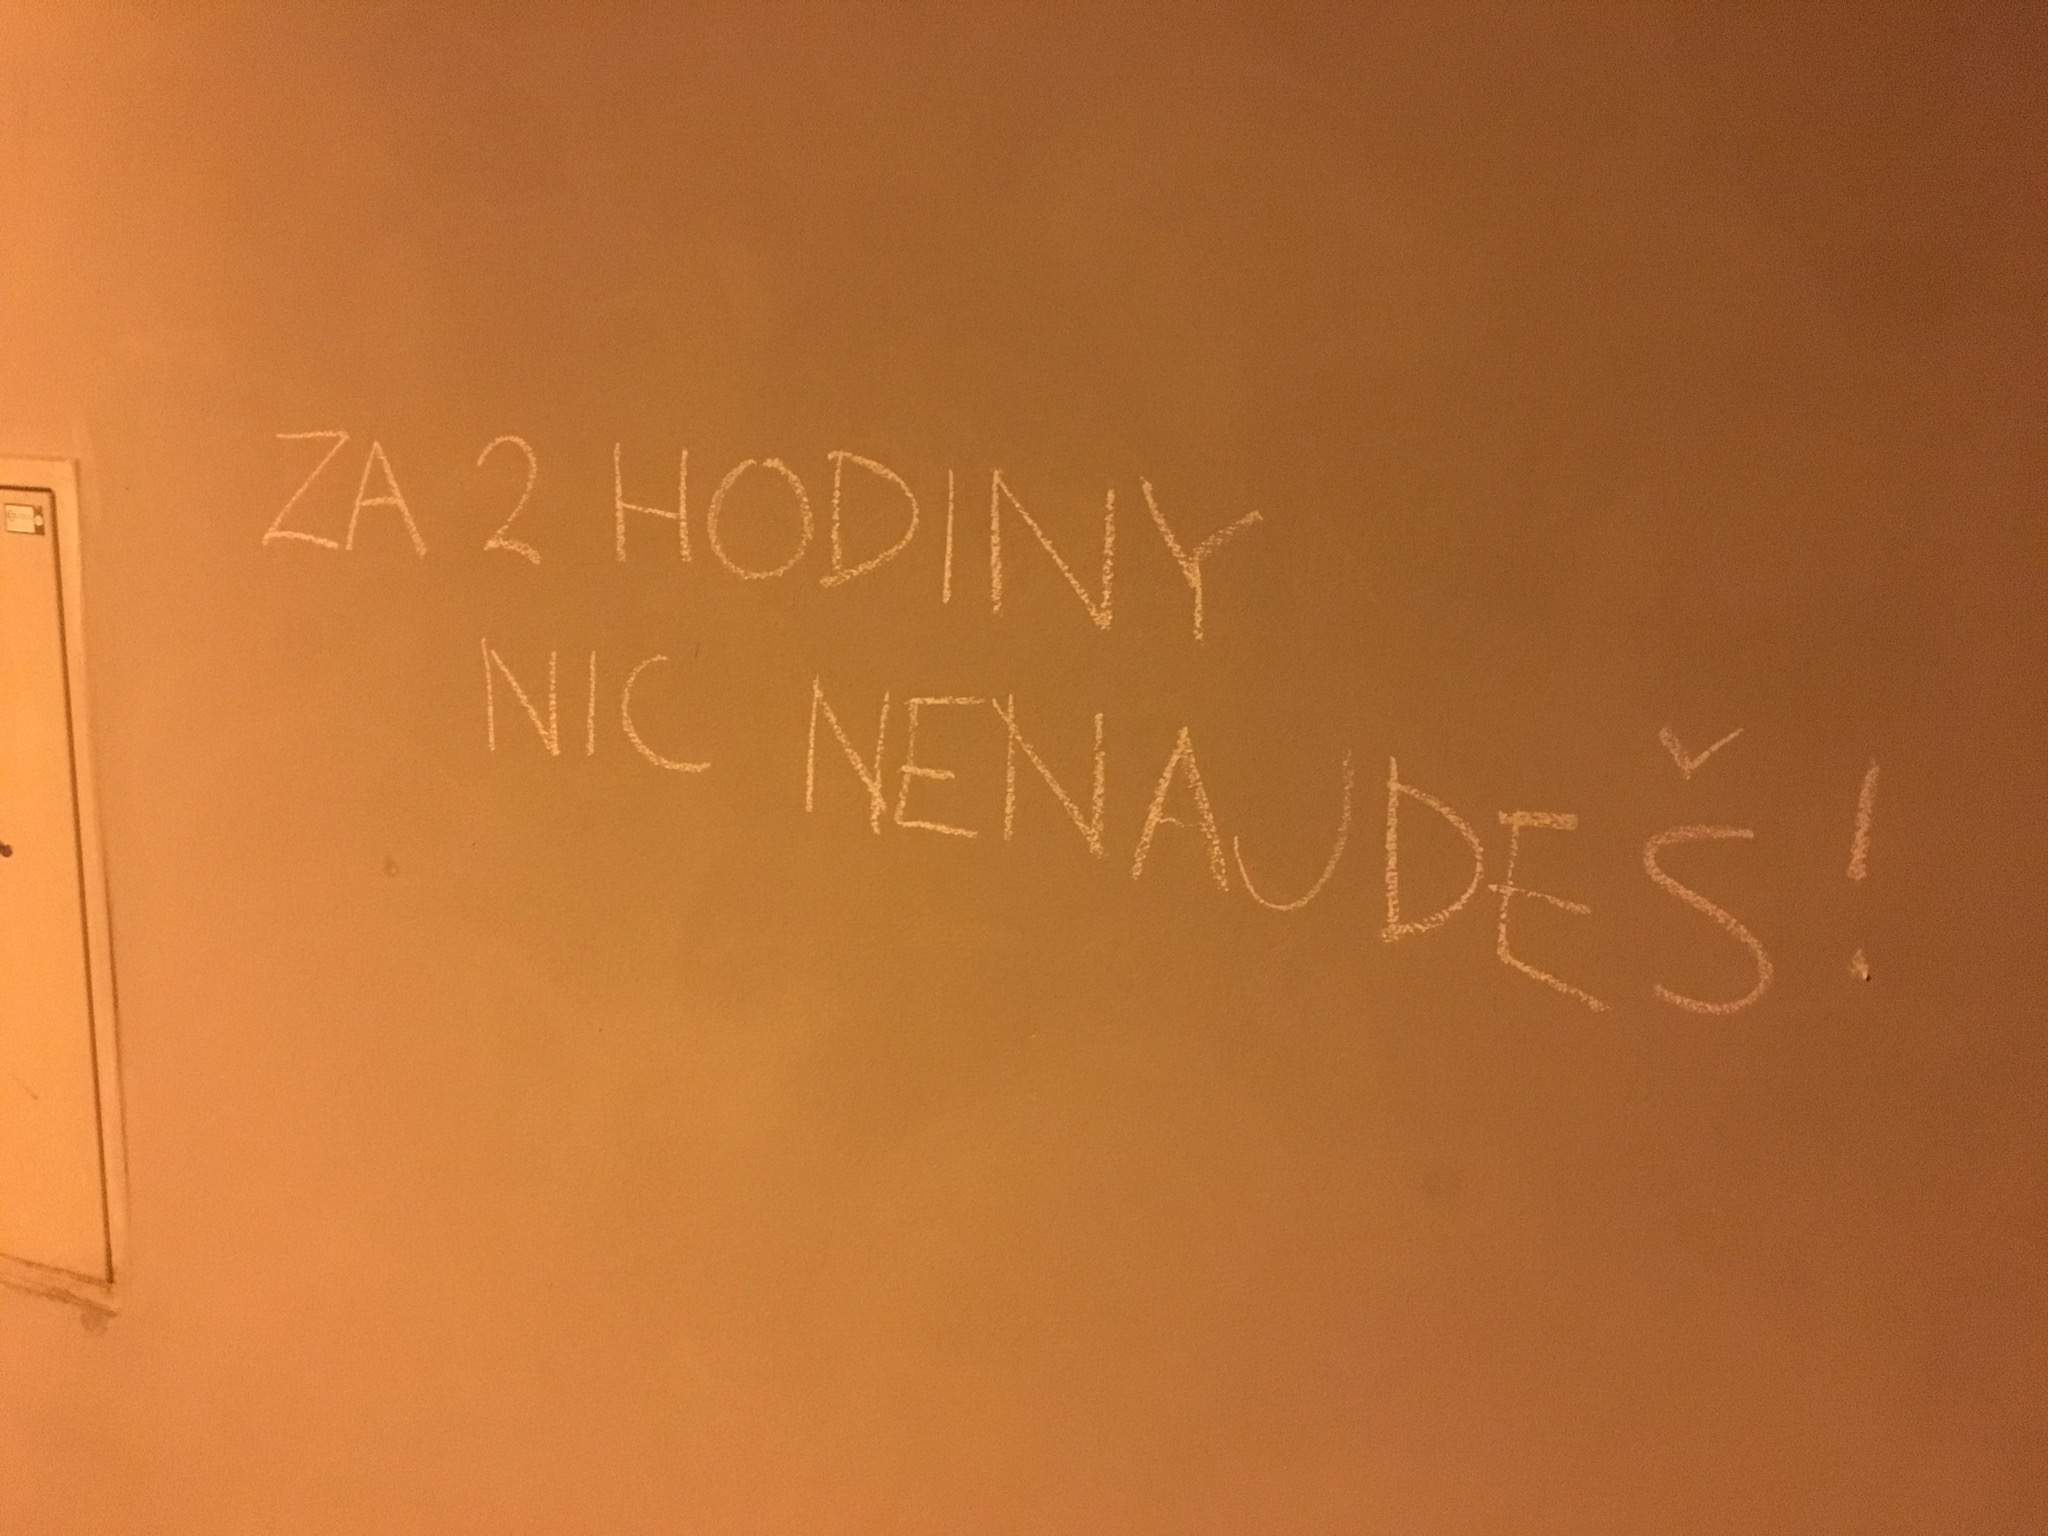 ZA 2 HODINY
NIC NENAJDEŠ!